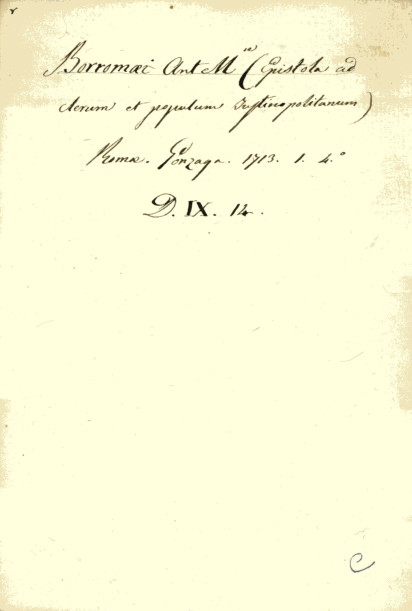 Borromæi Ant M^ii (Epistola ad
clerum et populum Justinopolitanum)
Romæ. Gonzaga. 1713. 1. 4.°
D. IX. 14.
C